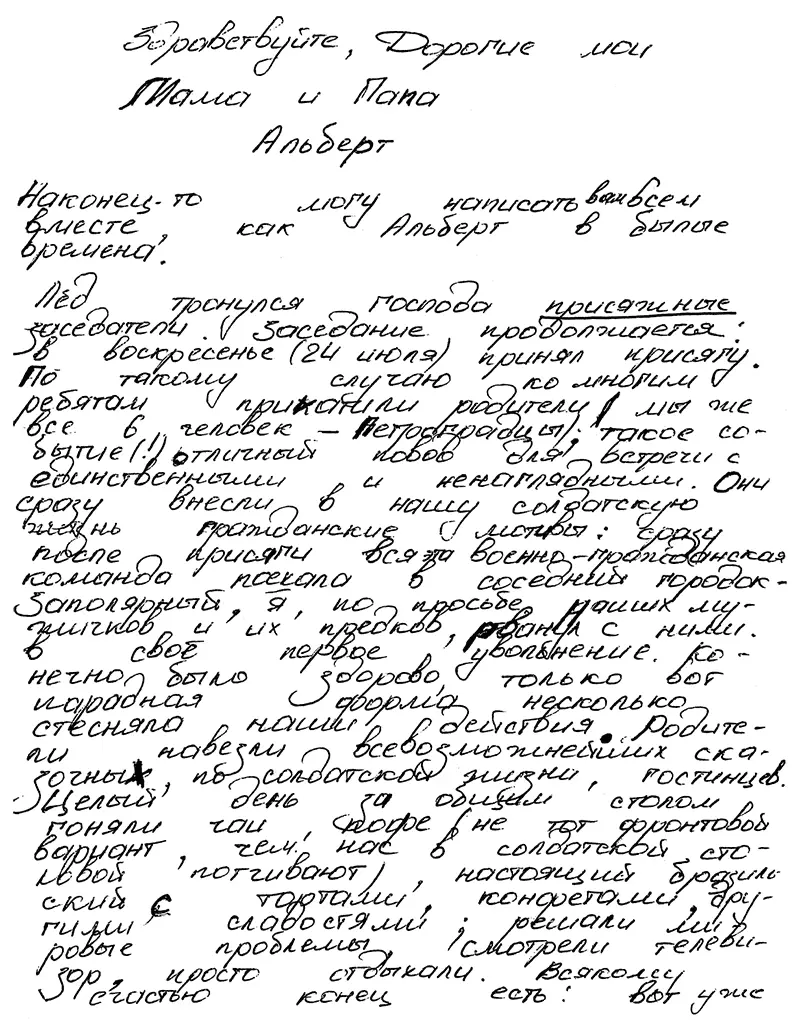 Здравствуйте, Дорогие мои
Мама и Папа
Альберт
Наконец-то могу написать вам всем
вместе, как Альберт в былые
времена.
Лёд тронулся господа присяжные
заседатели. Заседание продолжается!
В воскресенье (24 июля) принял присягу.
По такому случаю ко многим
ребятам прикатили родители (мы же
все 6 человек – Петроградцы); такое со-
бытие(!) отличный повод для встречи с
единственными и ненаглядными. Они
сразу внесли в нашу солдатскую
жизнь гражданские мотивы: сразу
после присяги вся эта военно-гражданская
команда поехала в соседний городок-
Заполярный, я, по просьбе наших му-
жичков и их предков, рванул с ними.
в своё первое увольнение. Ко-
нечно было здорово, только вот
парадная форма несколько
стесняла наши действия. Родите-
ли навезли всевозможнейших ска-
зочных, по солдатской жизни, гостинцев.
Целый день за общим столом
гоняли чаи, кофе (не тот фронтовой
вариант, чем нас в солдатской сто-
ловой потчивают), настоящий бразиль
ский с тортами, конфетами, дру-
гими сладостями; решали ми
ровые проблемы, смотрели телеви-
зор, просто отдыхали. Всякому
счастью конец есть: вот уже